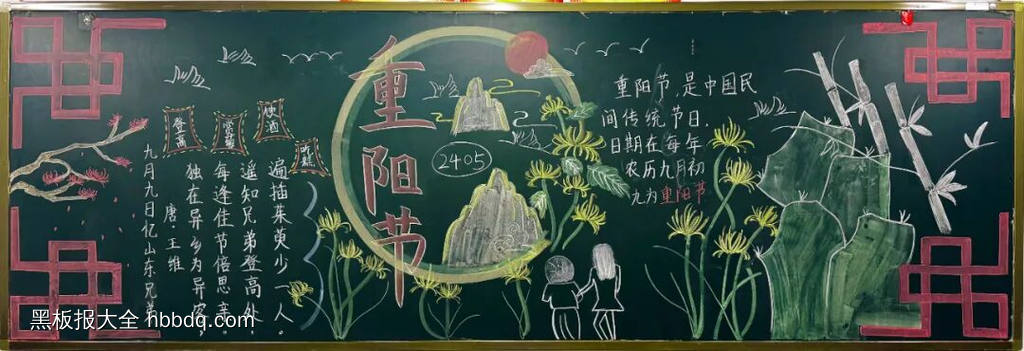 重阳节
2405
登高
九月九日忆山东兄弟
唐·王维
独在异乡为异客
每逢佳节倍思亲
遥知兄弟登高处
遍插茱萸少一人。
重阳节,是中国民
间传统节日,
日期在每年
农历九月初
九为重阳节
黑板报大全 hbbdq.com